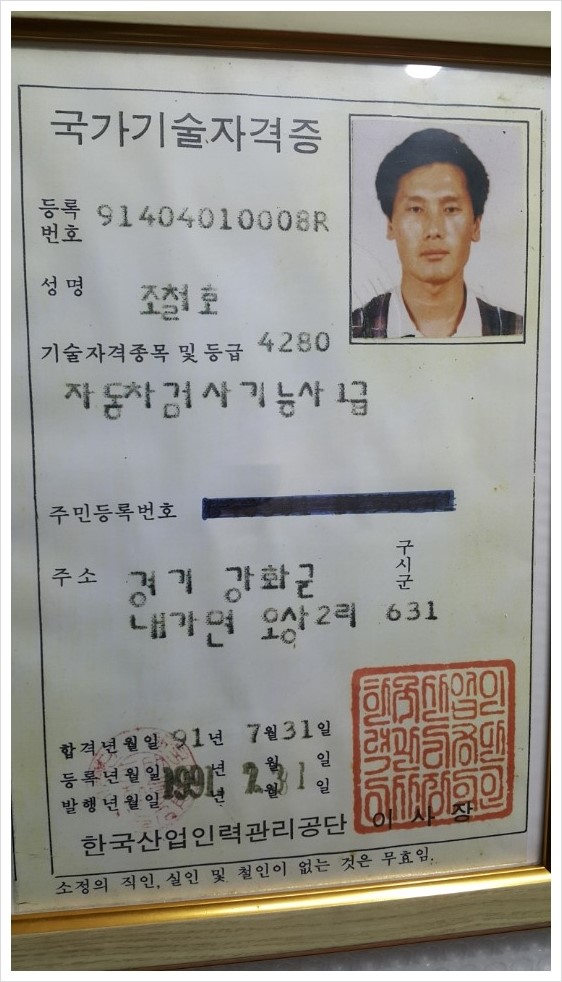 국가기술자격증
등록번호 91404010008R
성명 조철호
기술자격종목 및 등급 4280
자동차검사기능사 1급
주민등록번호
주소 경기 강화군 구시군
내가면 오상2리 631
합격년월일 91년 7월31일
등록년월일 1991년 7월31일
발행년월일 년 월 일
한국산업인력관리공단 이사장
소정의 직인, 실인 및 철인이 없는 것은 무효임.